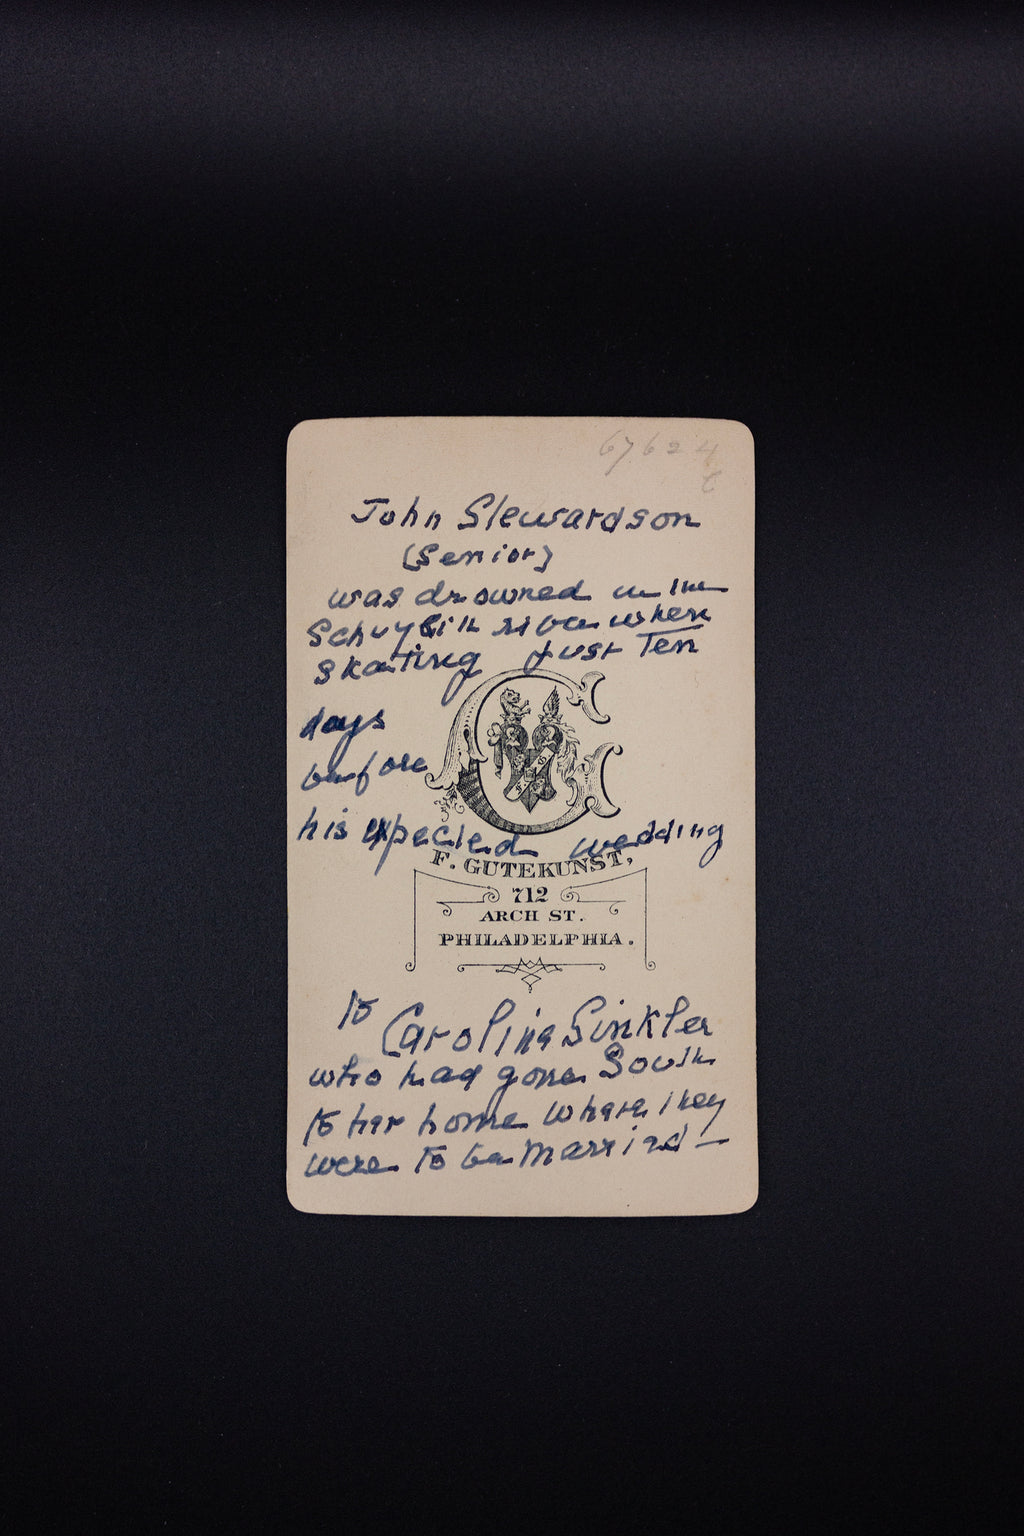 67624
John Stewardson
(Senior)
was drowned in the
Schuylkill river when
skating just Ten
days
before
his expected wedding
F. GUTEKUNST,
712
ARCH ST.
PHILADELPHIA.
to Caroline Sinkler
who had gone South
to her home where they
were to be married —